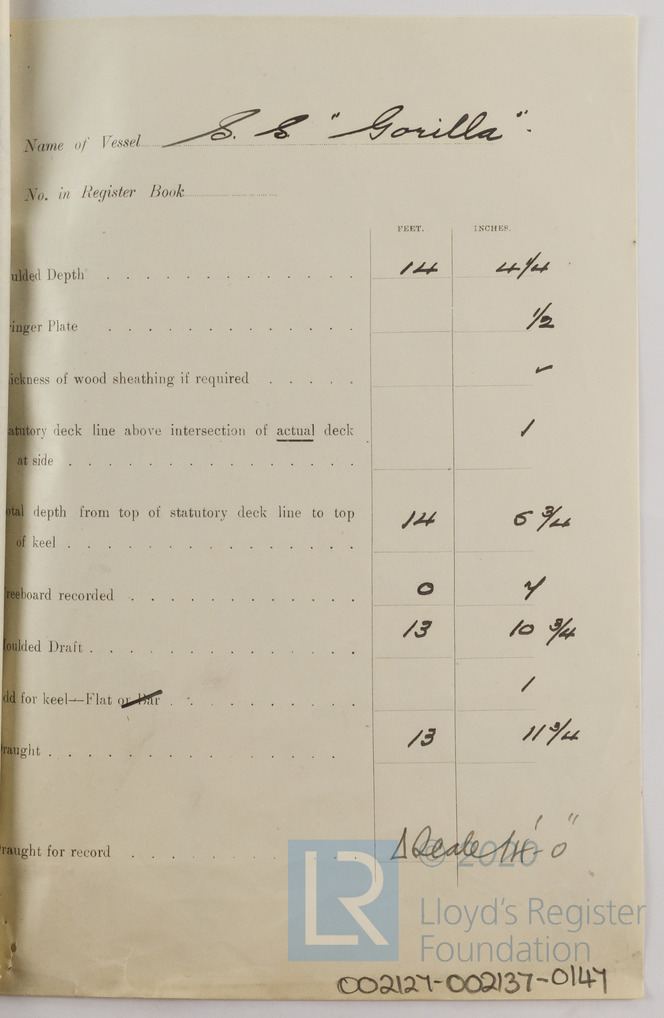 Name of Vessel S. S "Gorilla".
No. in Register Book
FEET. INCHES.
ulded Depth 14 4 1/4
inger Plate 1/2
ickness of wood sheathing if required ✓
atutory deck line above intersection of actual deck 1
at side
otal depth from top of statutory deck line to top 14 5 3/4
of keel
reeboard recorded 0 7
oulded Draft 13 10 3/4
dd for keel—Flat or Bar 1
raught 13 11 3/4
raught for record Δ Scale 14' 0"
LR © 2020
Lloyd's Register
Foundation
002127-002137-0147